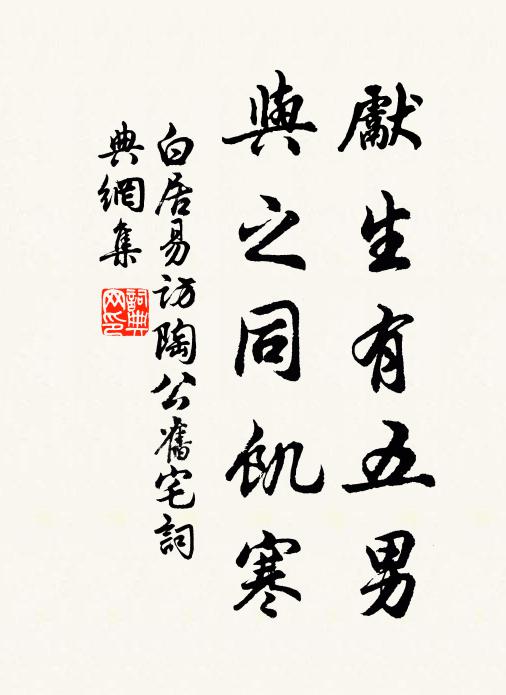 獻生有五男
與之同飢寒
白居易訪陶公舊宅詞
典網集
詞典
网印